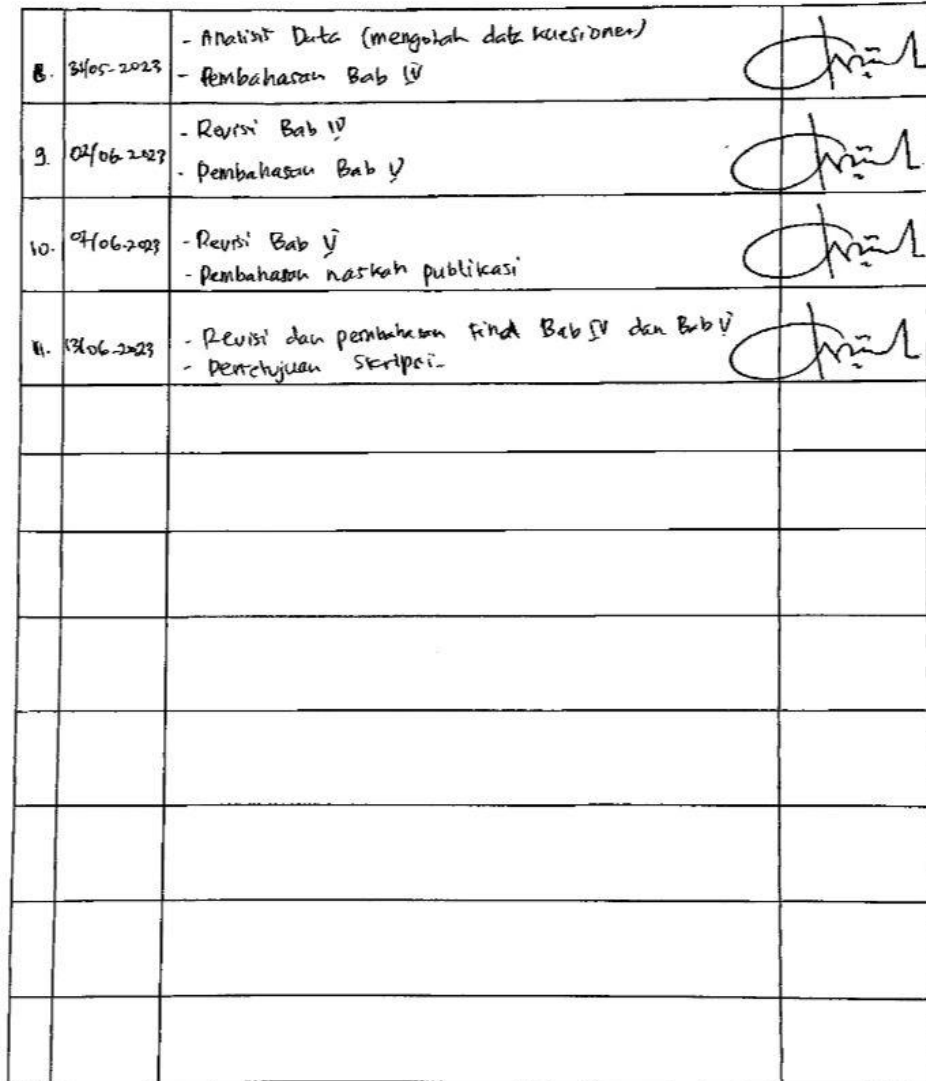 8. 31/05-2023 - Analisis Data (mengolah data kuesioner)
- Pembahasan Bab IV
9. 02/06-2023 - Revisi Bab IV
- Pembahasan Bab V
10. 07/06-2023 - Revisi Bab V
- Pembahasan naskah publikasi
11. 13/06-2023 - Revisi dan pembahasan final Bab IV dan Bab V
- Persetujuan Skripsi